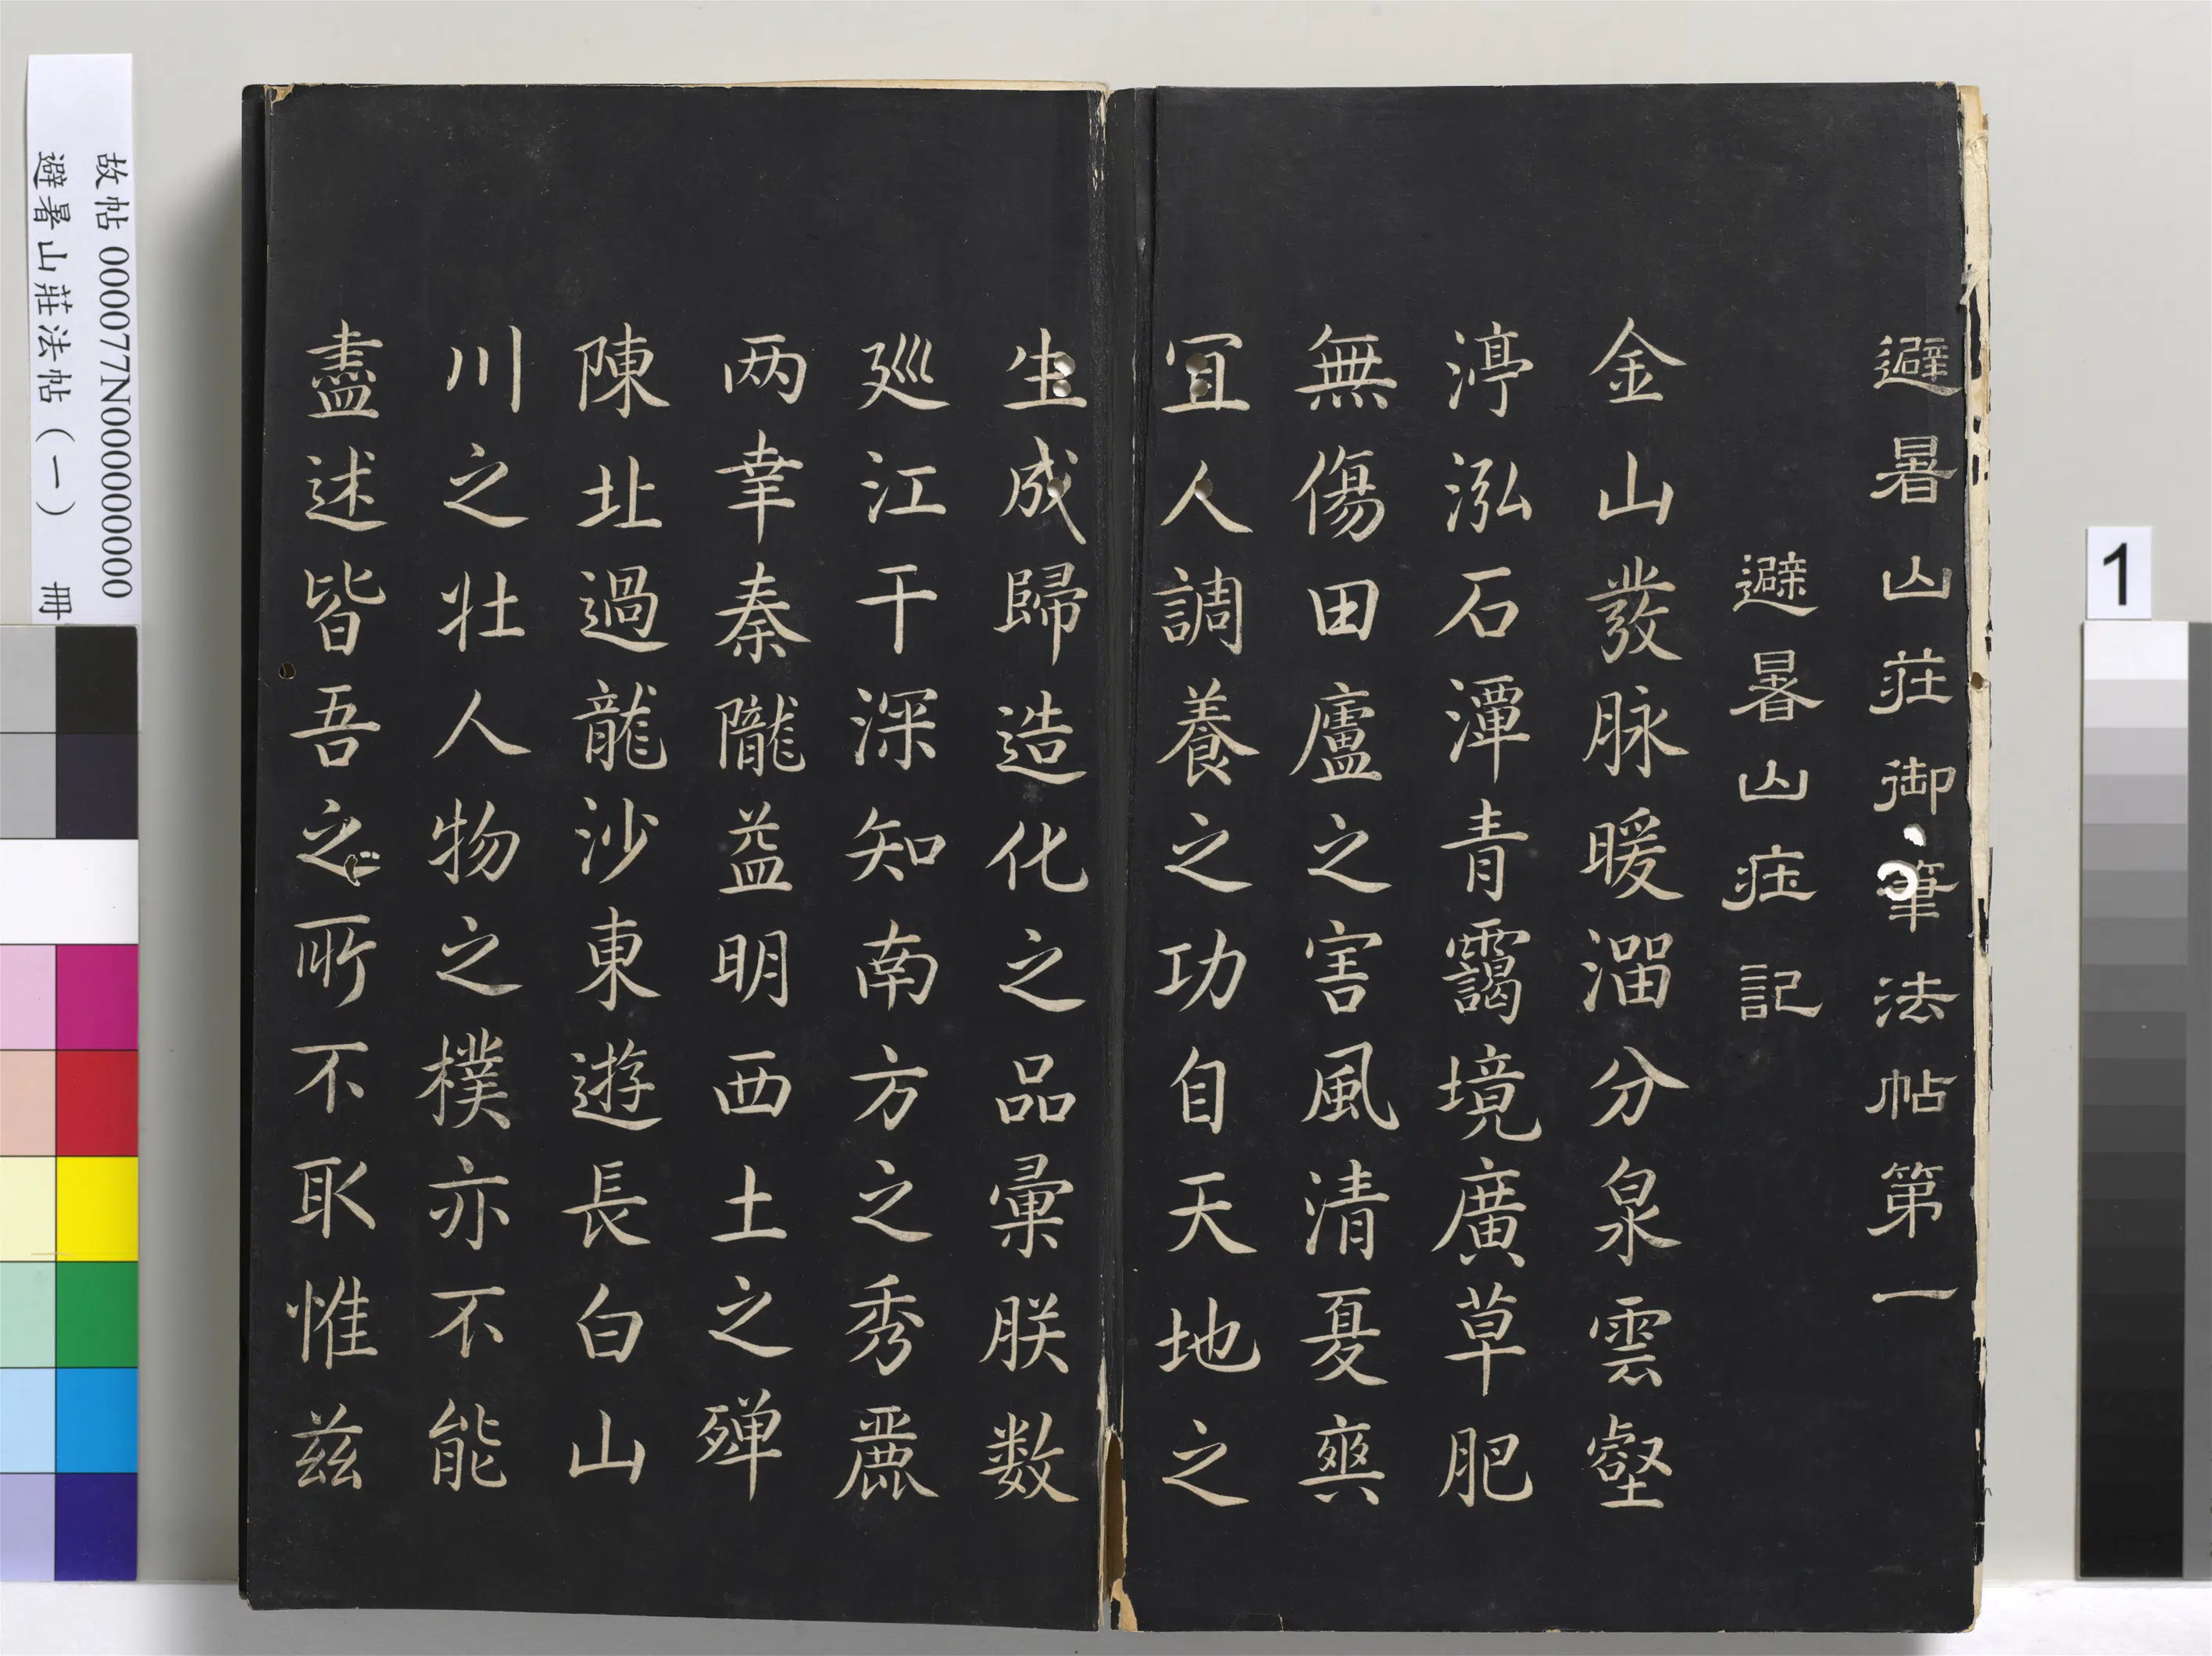 避暑山莊御筆法帖第一
避暑山莊記
金山發脉暖溜分泉雲壑
渟泓石潭青靄境廣草肥
無傷田廬之害風清夏爽
宜人調養之功自天地之
生成歸造化之品彙朕数
廵江干深知南方之秀麗
两幸秦隴益明西土之殫
陳北過龍沙東遊長白山
川之壯人物之樸亦不能
盡述皆吾之所不取惟茲
故帖000077N000000000
避暑山莊法帖(一) 冊
1